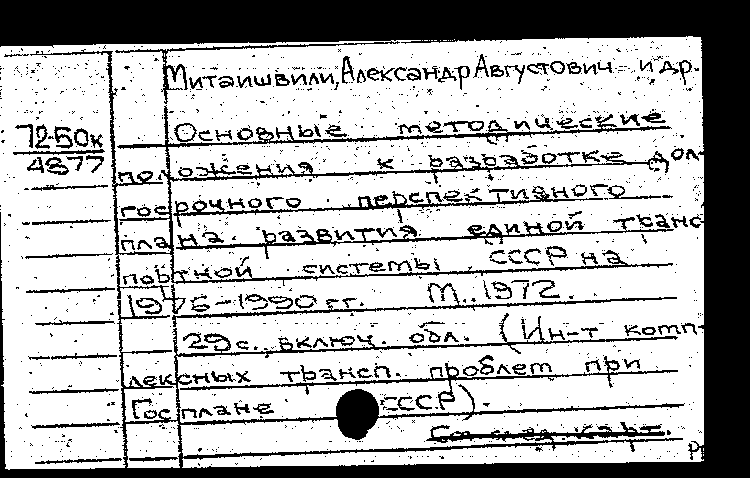 Митаишвили, Александр Августович и др.
72-50к
4877
Основные методические
положения к разработке дол-
госрочного перспективного
плана развития единой транс
портной системы СССР на
1976-1990 гг. М., 1972.
29 с., включ. обл. (Ин-т комп-
лексных трансп. проблем при
Госплане СССР).
См след. карт.